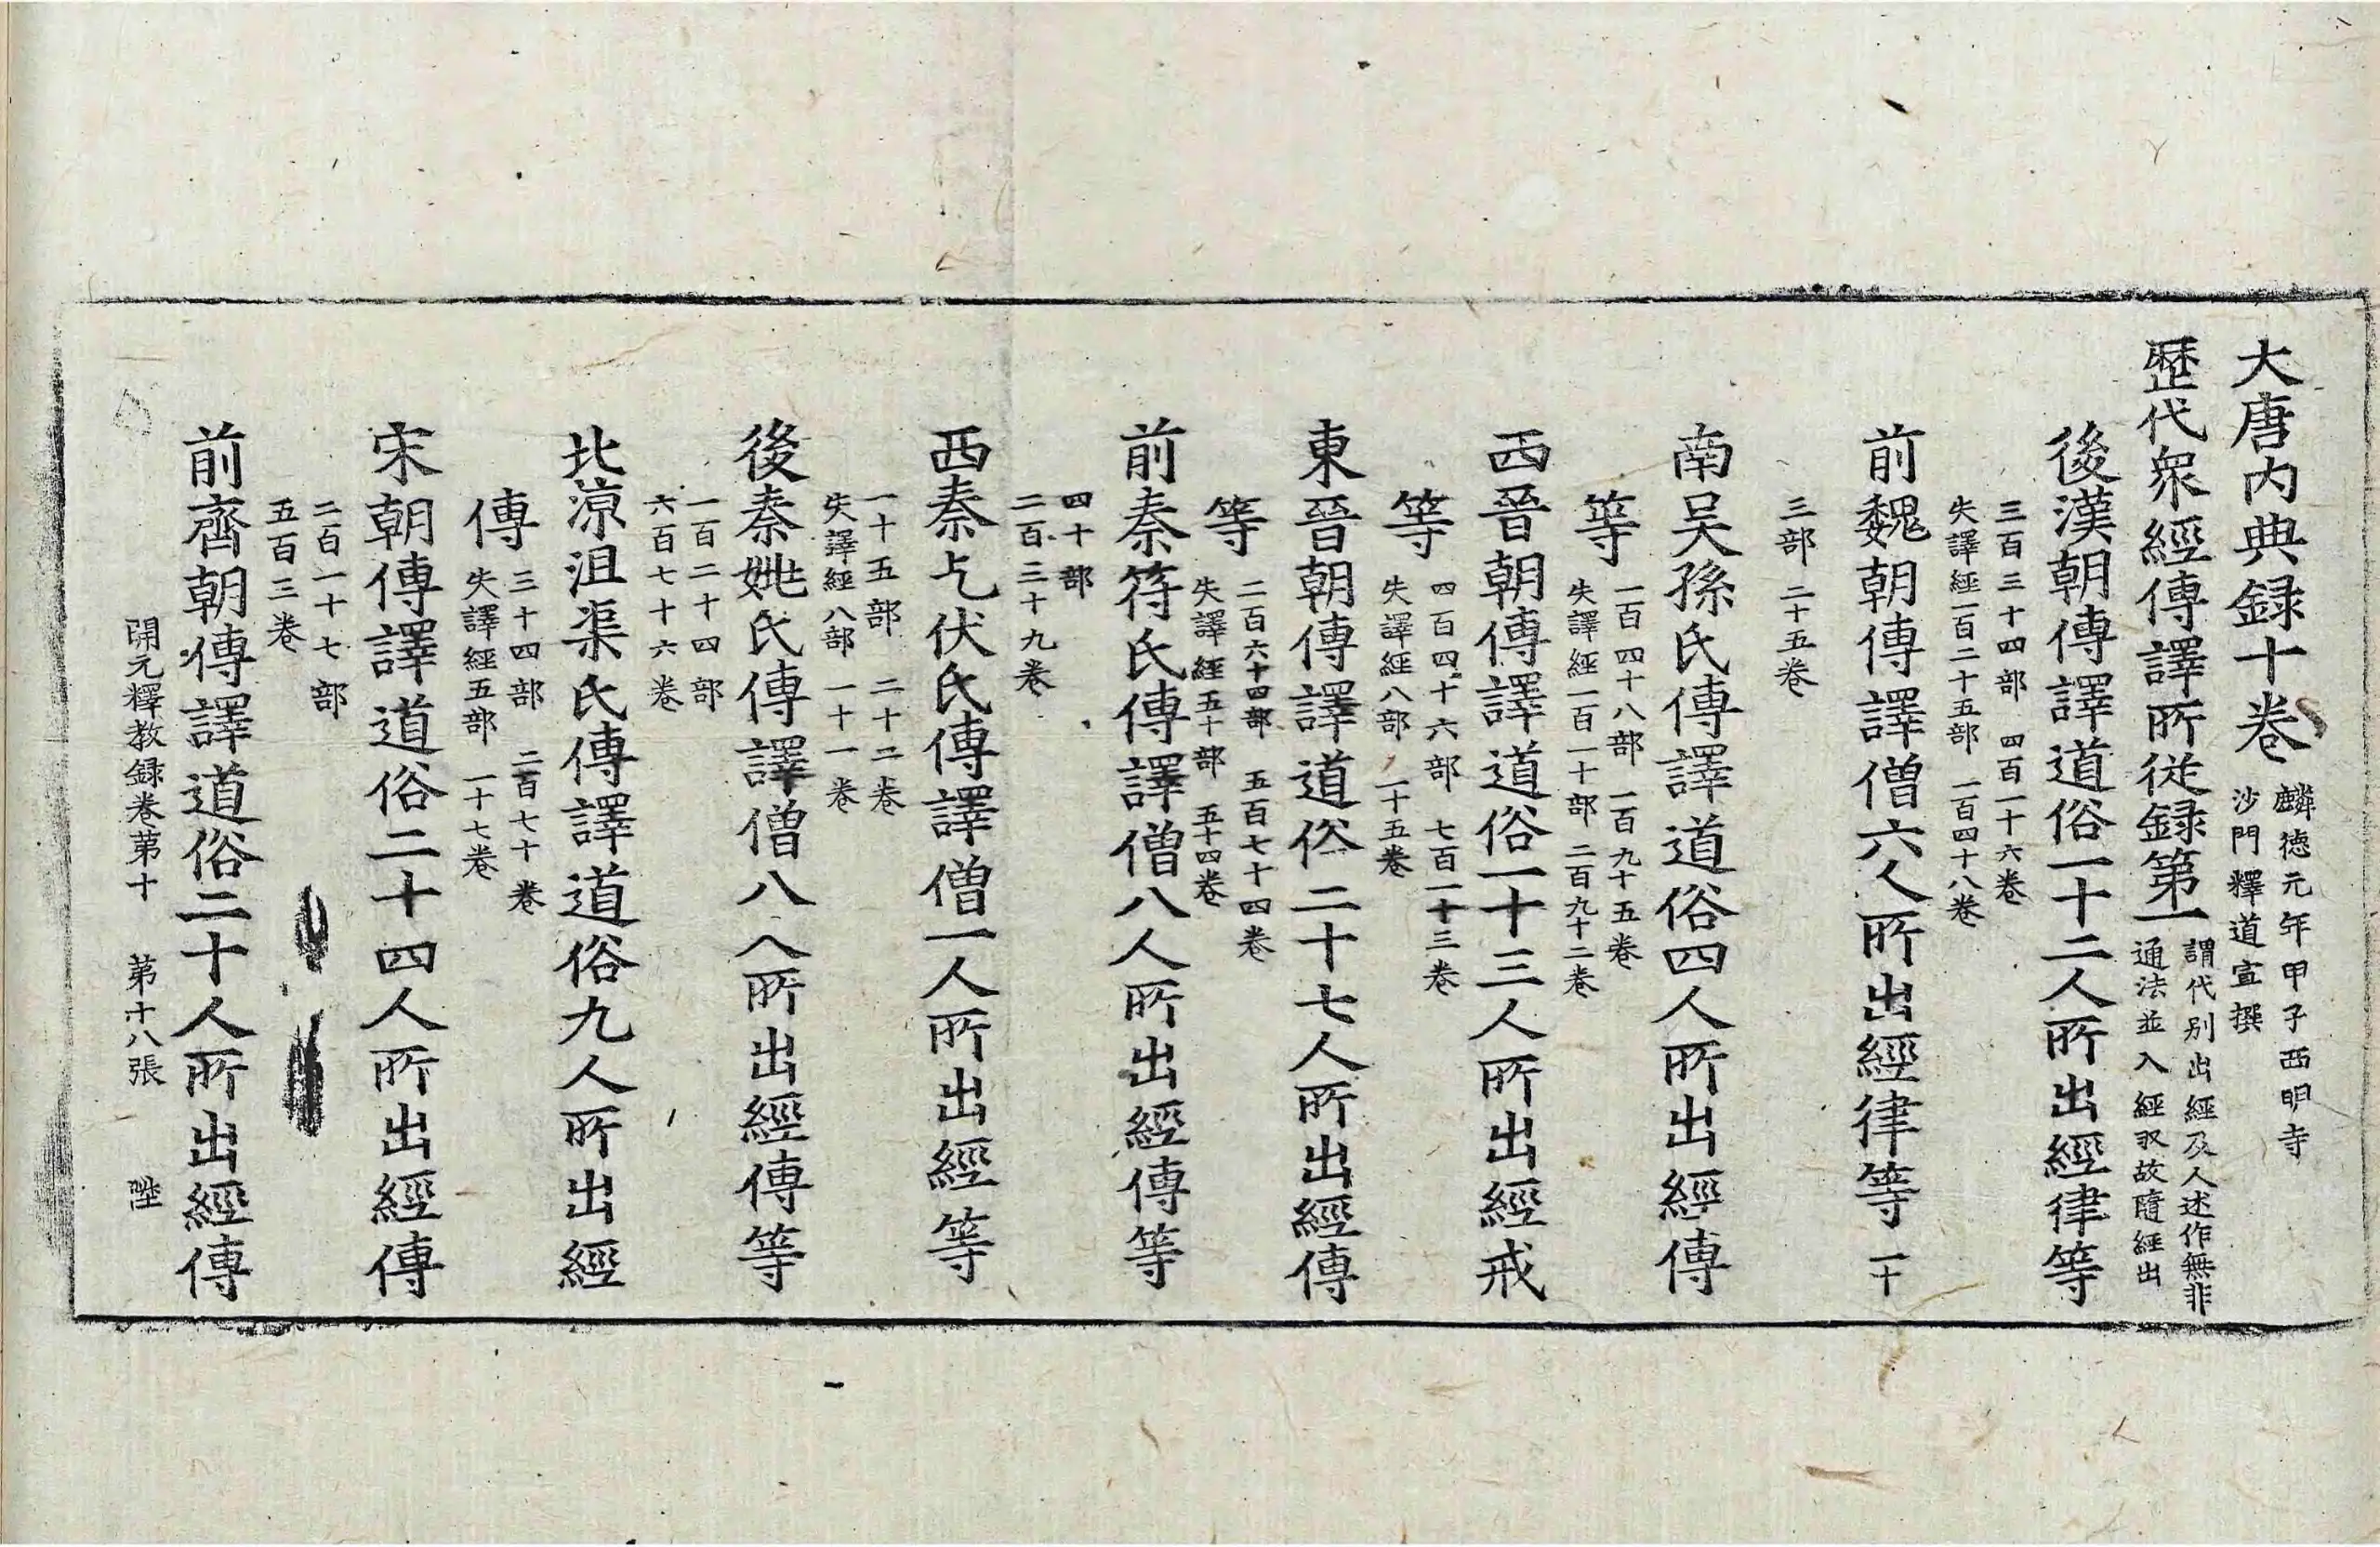 大唐内典録十卷 麟德元年甲子西明寺
沙門釋道宣撰
歷代衆經傳譯所從録第一 謂代别出經及人述作無非
通法並入經収故隨經出
後漢朝傳譯道俗一十二人所出經律等
三百三十四部 四百一十六卷
失譯經一百二十五部 一百四十八卷
前魏朝傳譯僧六人所出經律等 一十
三部 二十五卷
南吴孫氏傳譯道俗四人所出經傳
等 一百四十八部 一百九十五卷
失譯經一百一十部 二百九十二卷
西晉朝傳譯道俗一十三人所出經戒
等 四百四十六部 七百一十三卷
失譯經八部 一十五卷
東晉朝傳譯道俗二十七人所出經傳
等 二百六十四部 五百七十四卷
失譯經五十部 五十四卷
前秦符氏傳譯僧八人所出經傳等
四十部
二百三十九卷
西秦乞伏氏傳譯僧一人所出經等
一十五部 二十二卷
失譯經八部 一十一卷
後秦姚氏傳譯僧八人所出經傳等
一百二十四部
六百七十六卷
北涼沮渠氏傳譯道俗九人所出經
傳 三十四部 二百七十卷
失譯經五部 一十七卷
宋朝傳譯道俗二十四人所出經傳
二百一十七部
五百三卷
前齊朝傳譯道俗二十人所出經傳
開元釋教録卷苐十 苐十八張 陞